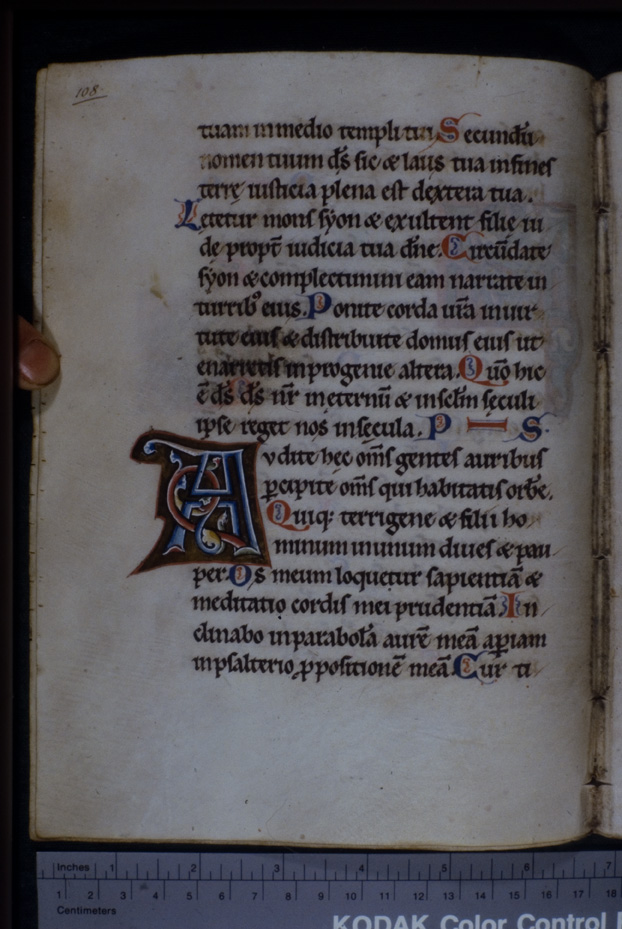 108
tuam in medio templi tui Secundū
nomen tuum d̄s sic & laus tua in fines
terrę iusticia plena est dextera tua.
Letetur mons syon & exultent filie iu
de propt̄ iudicia tua dn̄e. Circūdate
syon & complectimini eam narrate in
turrib⁹ eius. Ponite corda ur̄a in uir
tute eius & distribuite domus eius ut
enarretis in progenie altera. Quō hic
ē d̄s d̄s nr̄ in eternū & in sc̄lm seculi
ipse reget nos in secula. P S.
Audite hec om̄s gentes auribus
ꝑcipite om̄s qui habitatis orbē.
Quiq; terrigene & filii ho
minum in unum diues & pau
per. Os meum loquetur sapientiā &
meditatio cordis mei prudentiā. In
clinabo in parabolā aurē meā aꝑiam
in psalterio ꝓpositionē meā. Cur ti
Inches 1 2 3 4 5 6 7
1 2 3 4 5 6 7 8 9 10 11 12 13 14 15 16 17 18
Centimeters
KODAK Color Control